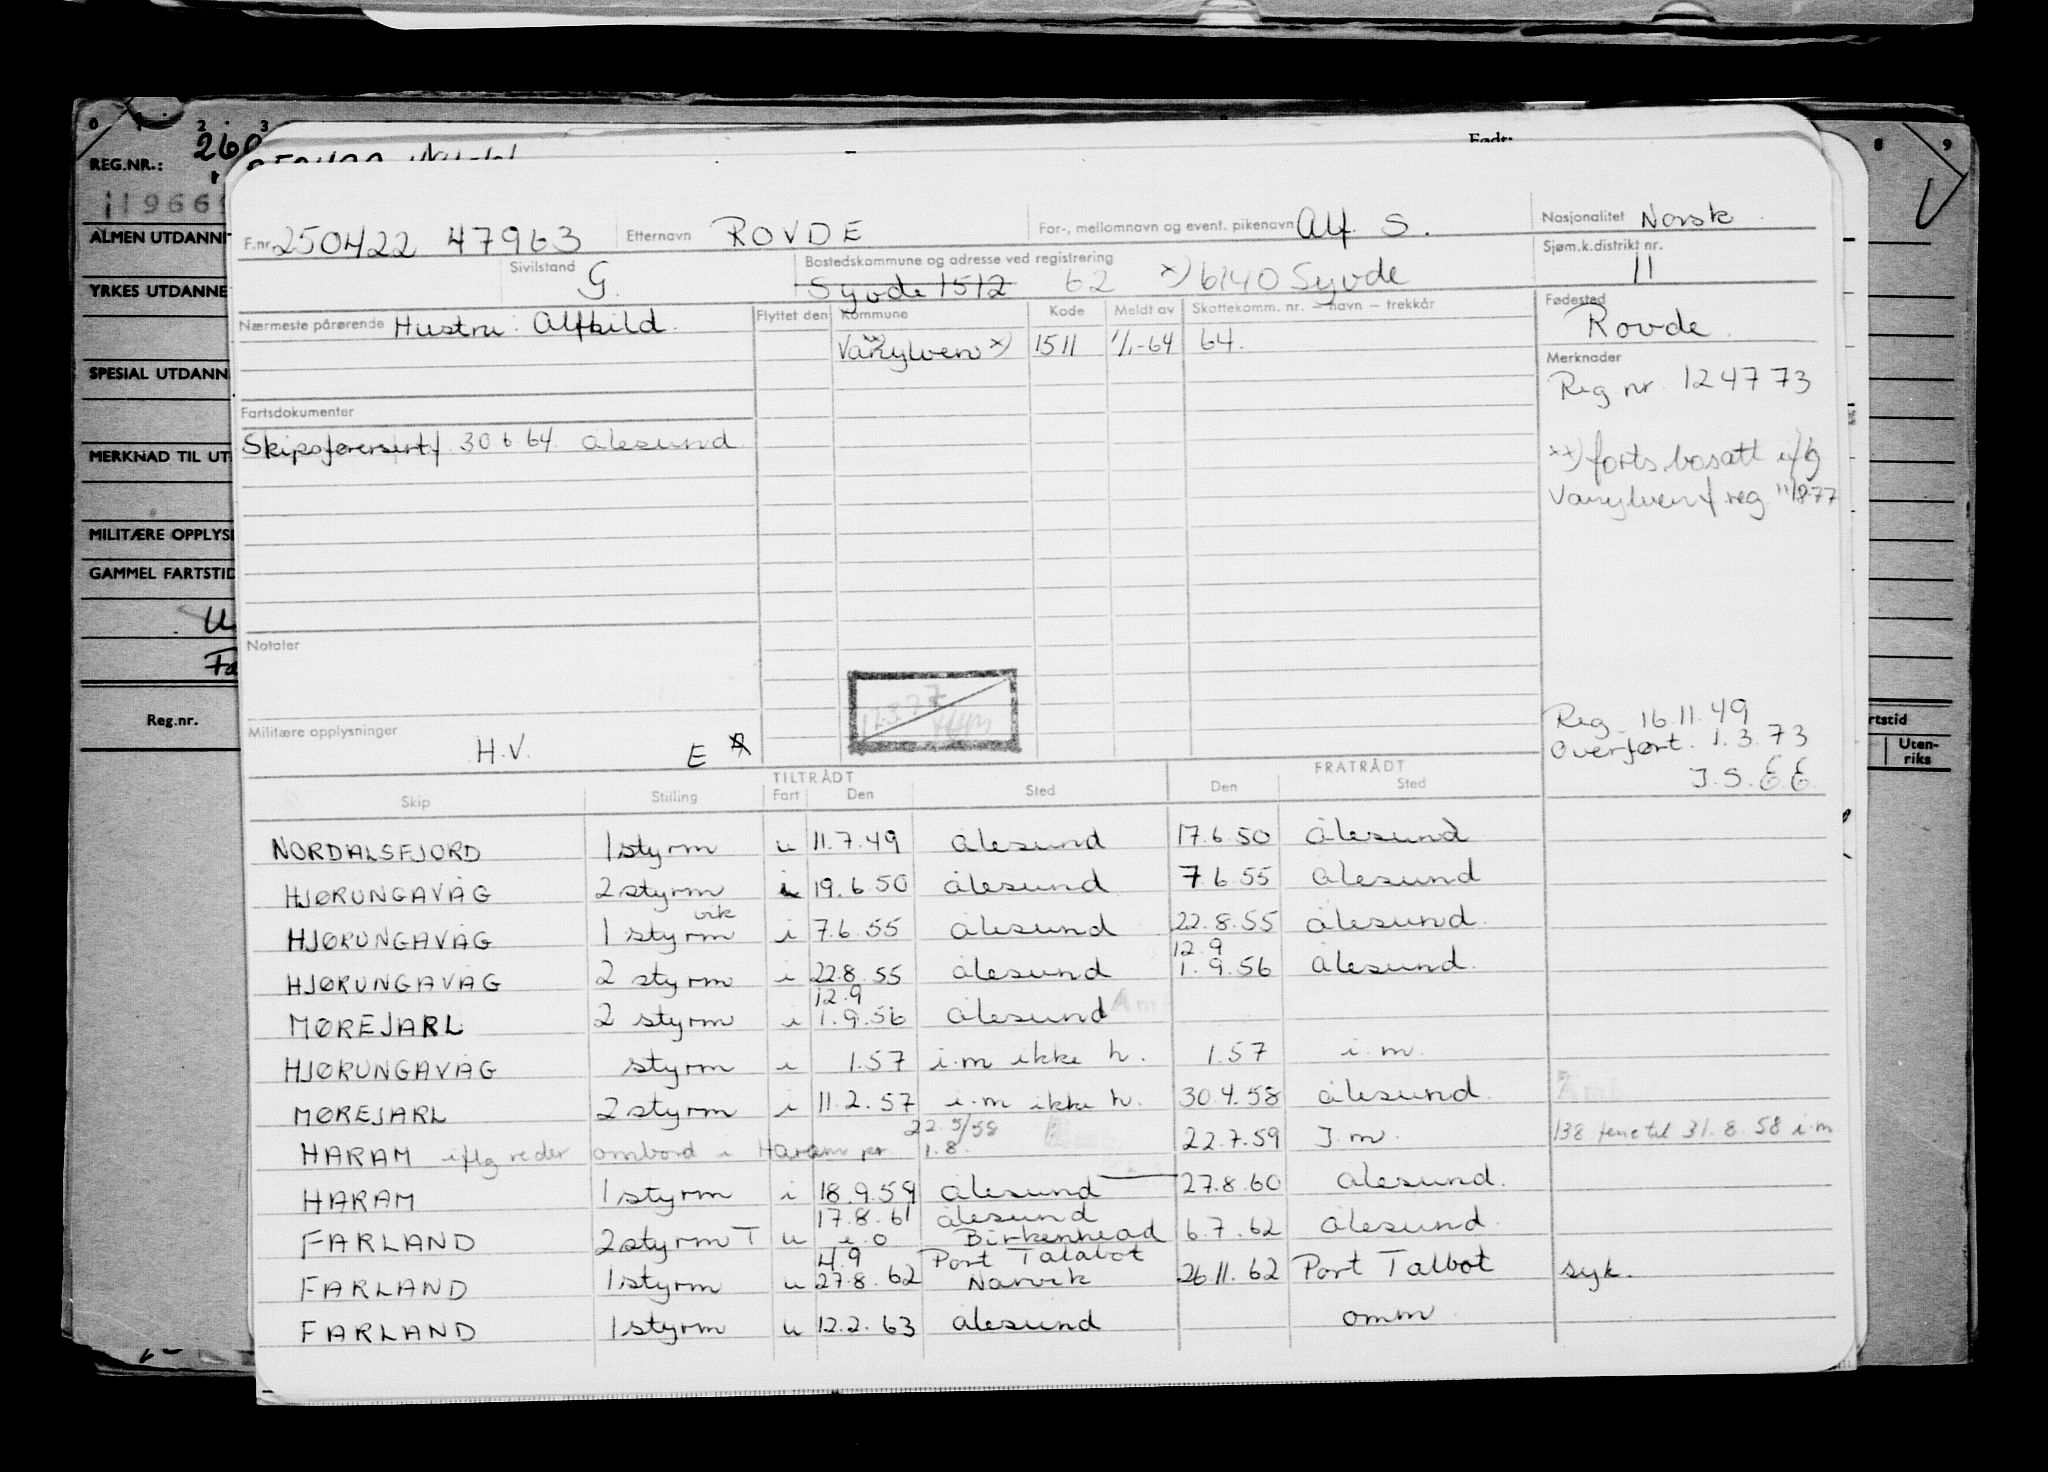 0 1 2 3 8 9
REG.NR.: 260
119669
Født:
ALMEN UTDANNI
YRKES UTDANNE
SPESIAL UTDANN
MERKNAD TIL UT
MILITÆRE OPPLYSI
GAMMEL FARTSTID
Reg.nr.
rtstid
Uten-
riks
F.nr. 250422 47963 Etternavn ROVDE For-, mellomnavn og event. pikenavn Alf S. Nasjonalitet Norsk
Sivilstand G. Bostedskommune og adresse ved registrering Syvde 1512 62 x) 6140 Syvde Sjøm.k.distrikt nr. 11
Nærmeste pårørende Hustru: Alfhild. Flyttet den Kommune Kode Meldt av Skattekomm. nr. – navn – trekkår Fødested Rovde.
xx
Vanylven x) 1511 1/1-64 64.
Merknader
Reg nr. 124773
Fartsdokumenter
Skipsførersertf 30.6.64. Ålesund
xx) forts. bosatt iflg
Vanylven f.reg. 11/8-77
Notater
12.8.77
Militære opplysninger H.V. E
Reg. 16.11.49
Overført. 1.3.73
J.S. E.E.
TILTRÅDT FRATRÅDT
Skip Stilling Fart Den Sted Den Sted
NORDALSFJORD 1 styrm u 11.7.49 Ålesund 17.6.50 Ålesund
HJØRUNGAVÅG 2 styrm i 19.6.50 Ålesund 7.6.55 Ålesund
HJØRUNGAVÅG 1 styrm vik i 7.6.55 Ålesund 22.8.55 Ålesund.
12.9
HJØRUNGAVÅG 2 styrm i 22.8.55 Ålesund 1.9.56 Ålesund.
12.9
MØREJARL 2 styrm i 1.9.56 Ålesund
HJØRUNGAVÅG styrm i 1.57 i.m ikke h. 1.57 i.m.
MØREJARL 2 styrm i 11.2.57 i.m ikke h. 30.4.58 Ålesund.
22.5/58
HARAM iflg reder ombord i Haram pr 1.8. 22.7.59 I.m. 138 ferie til 31.8.58 i.m
HARAM 1 styrm i 18.9.59 Ålesund 27.8.60 Ålesund.
17.8.61 Ålesund
FARLAND 2 styrm T u i.o Birkenhead 6.7.62 Ålesund.
4.9 Port Talabot
FARLAND 1 styrm u 27.8.62 Narvik 26.11.62 Port Talbot syk.
FARLAND 1 styrm u 12.2.63 Ålesund omm